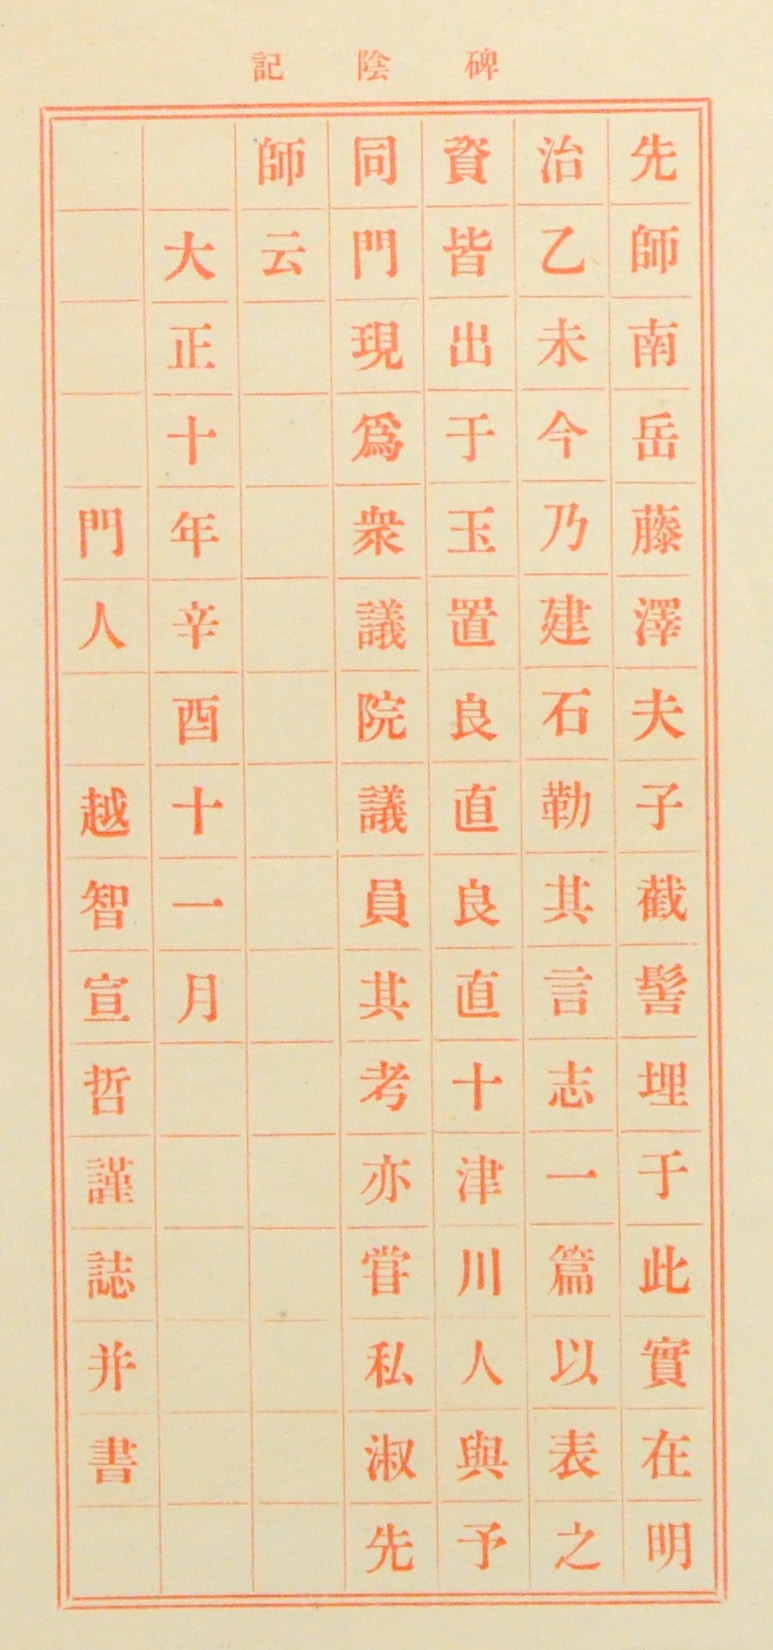 碑陰記
先師南岳藤澤夫子截髻埋于此實在明
治乙未今乃建石勒其言志一篇以表之
資皆出于玉置良直良直十津川人與予
同門現爲衆議院議員其考亦嘗私淑先
師云
大正十年辛酉十一月
門人 越智宣哲謹誌并書